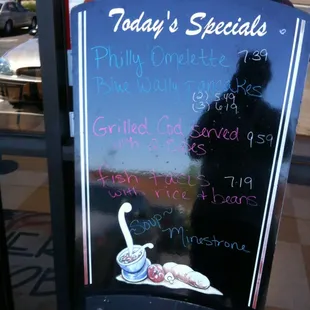 Today's Specials
Philly Omelette 7.39
Blue
(2) 5.49
(3) 6.19
Grilled Cod Served 9.59
Fish 7.19
with rice + beans
Soup~
Minestrone